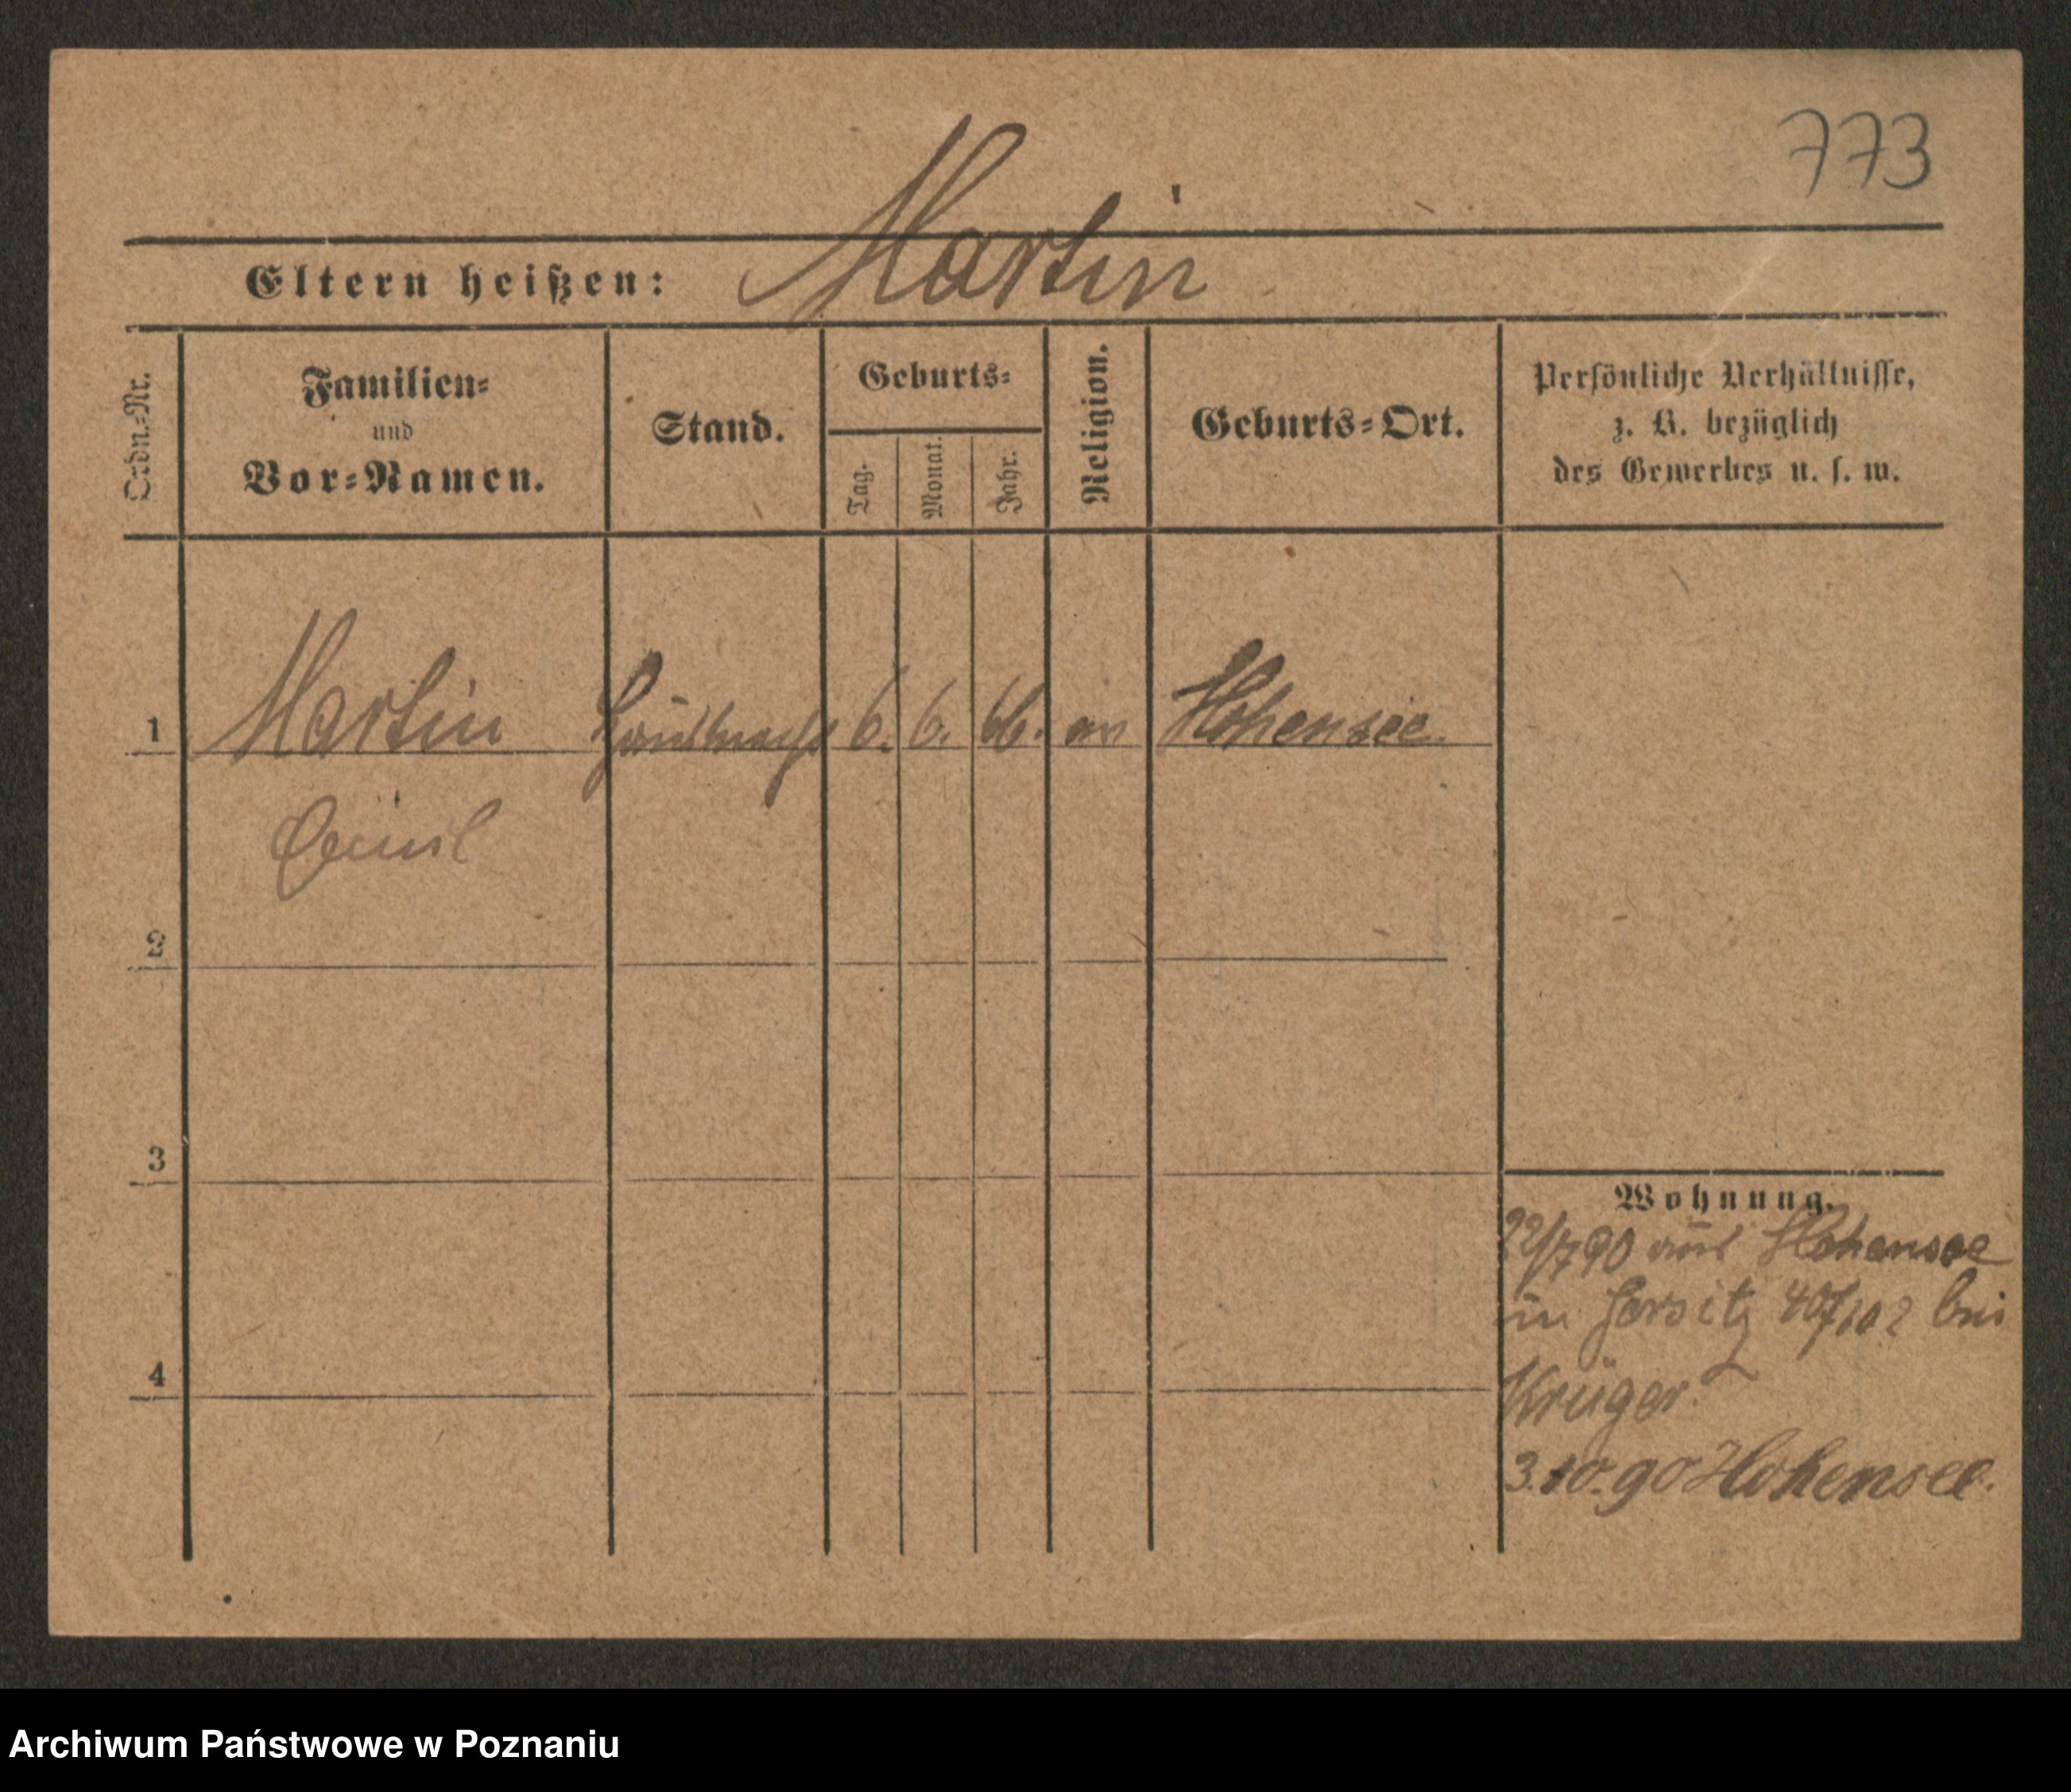 773
Martin
Eltern heißen:
Ordn.-Nr.
Familien-
und
Vor-Namen.
Stand.
Geburts-
Tag.
Monat.
Jahr.
Religion.
Geburts-Ort.
Persönliche Verhältnisse,
z. B. bezüglich
des Gewerbes u. s. w.
1 Martin 6. 6. 66. ev Hohensee
2
3
4
Wohnung.
22/7 90 aus Hohensee
in Jersitz bei
Krüger.
3.10.90 Hohensee.
Archiwum Państwowe w Poznaniu